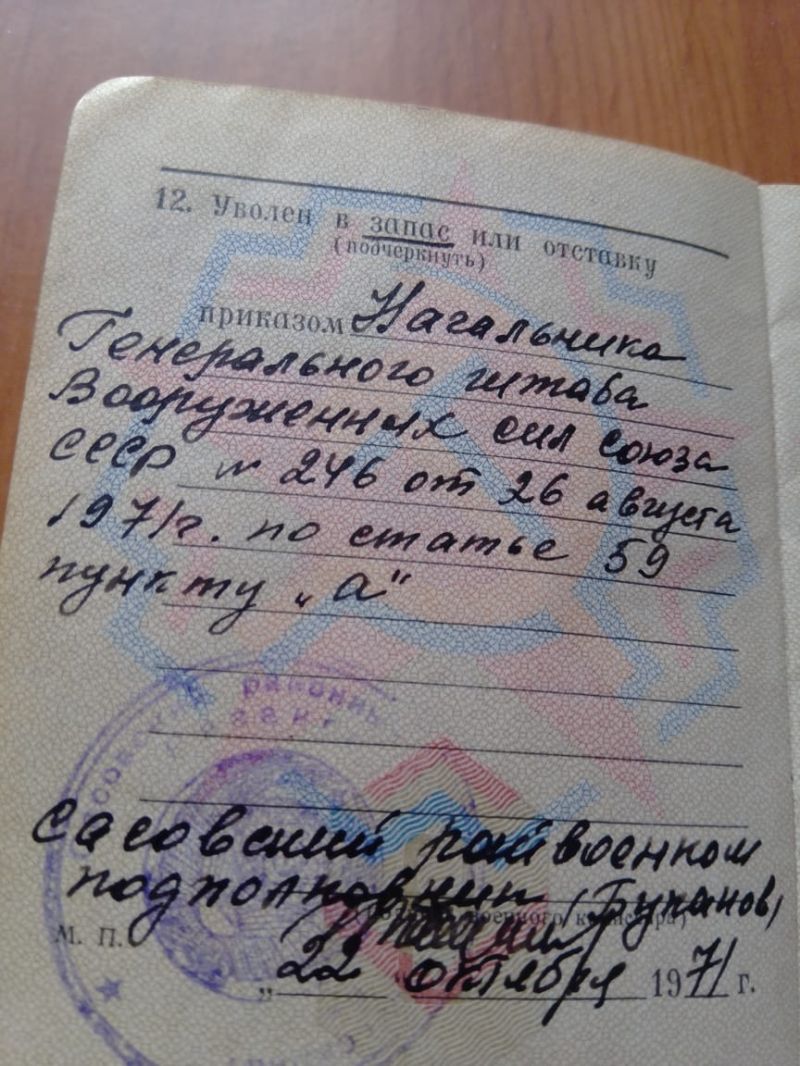 12. Уволен в запас или отставку
(подчеркнуть)
приказом Начальника
Генерального штаба
Вооруженных сил союза
СССР № 246 от 26 августа
1971г. по статье 59
пункту „а"
районный
Сасовский райвоенком
подполковник
военного
М. П.
„22 октября 1971 г.